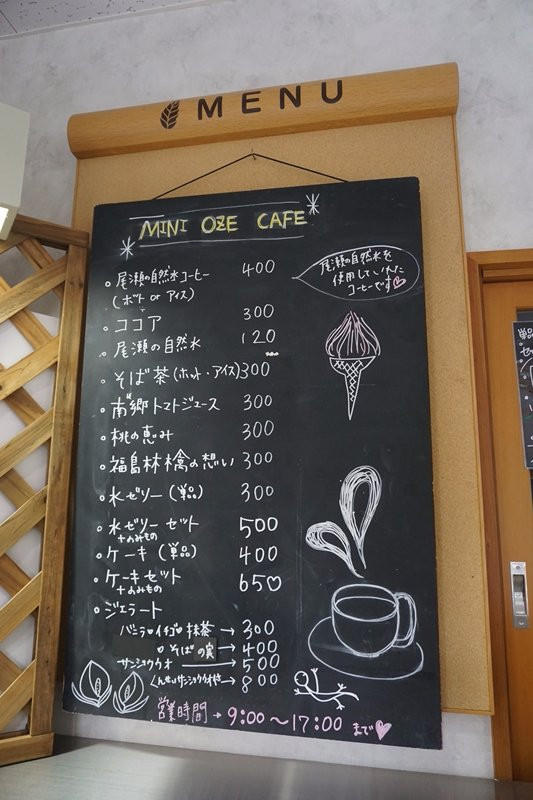 MENU
MINI OZE CAFE
尾瀬の自然水コーヒー 400
(ホット or アイス)
尾瀬の自然水を
使用していれた
コーヒーです♡
ココア 300
尾瀬の自然水 120
そば茶(ホット・アイス) 300
南郷トマトジュース 300
桃の恵み 300
福島林檎の想い 300
水ゼリー(単品) 300
水ゼリーセット 500
+のみもの
ケーキ(単品) 400
ケーキセット 650
+のみもの
ジェラート
バニラ・イチゴ・抹茶→300
そばの実→400
サンショウウオ 500
くんせいサンショウウオ付→800
営業時間→9:00〜17:00まで♡